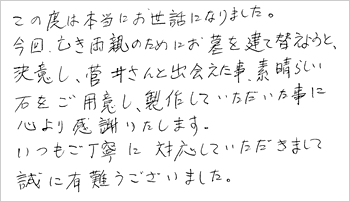 この度は本当にお世話になりました。
今回、亡き両親のためにお墓を建て替えようと、
決意し、菅井さんと出会えた事、素晴らしい
石をご用意し、製作していただいた事に
心より感謝いたします。
いつもご丁寧に対応していただきまして
誠に有難うございました。